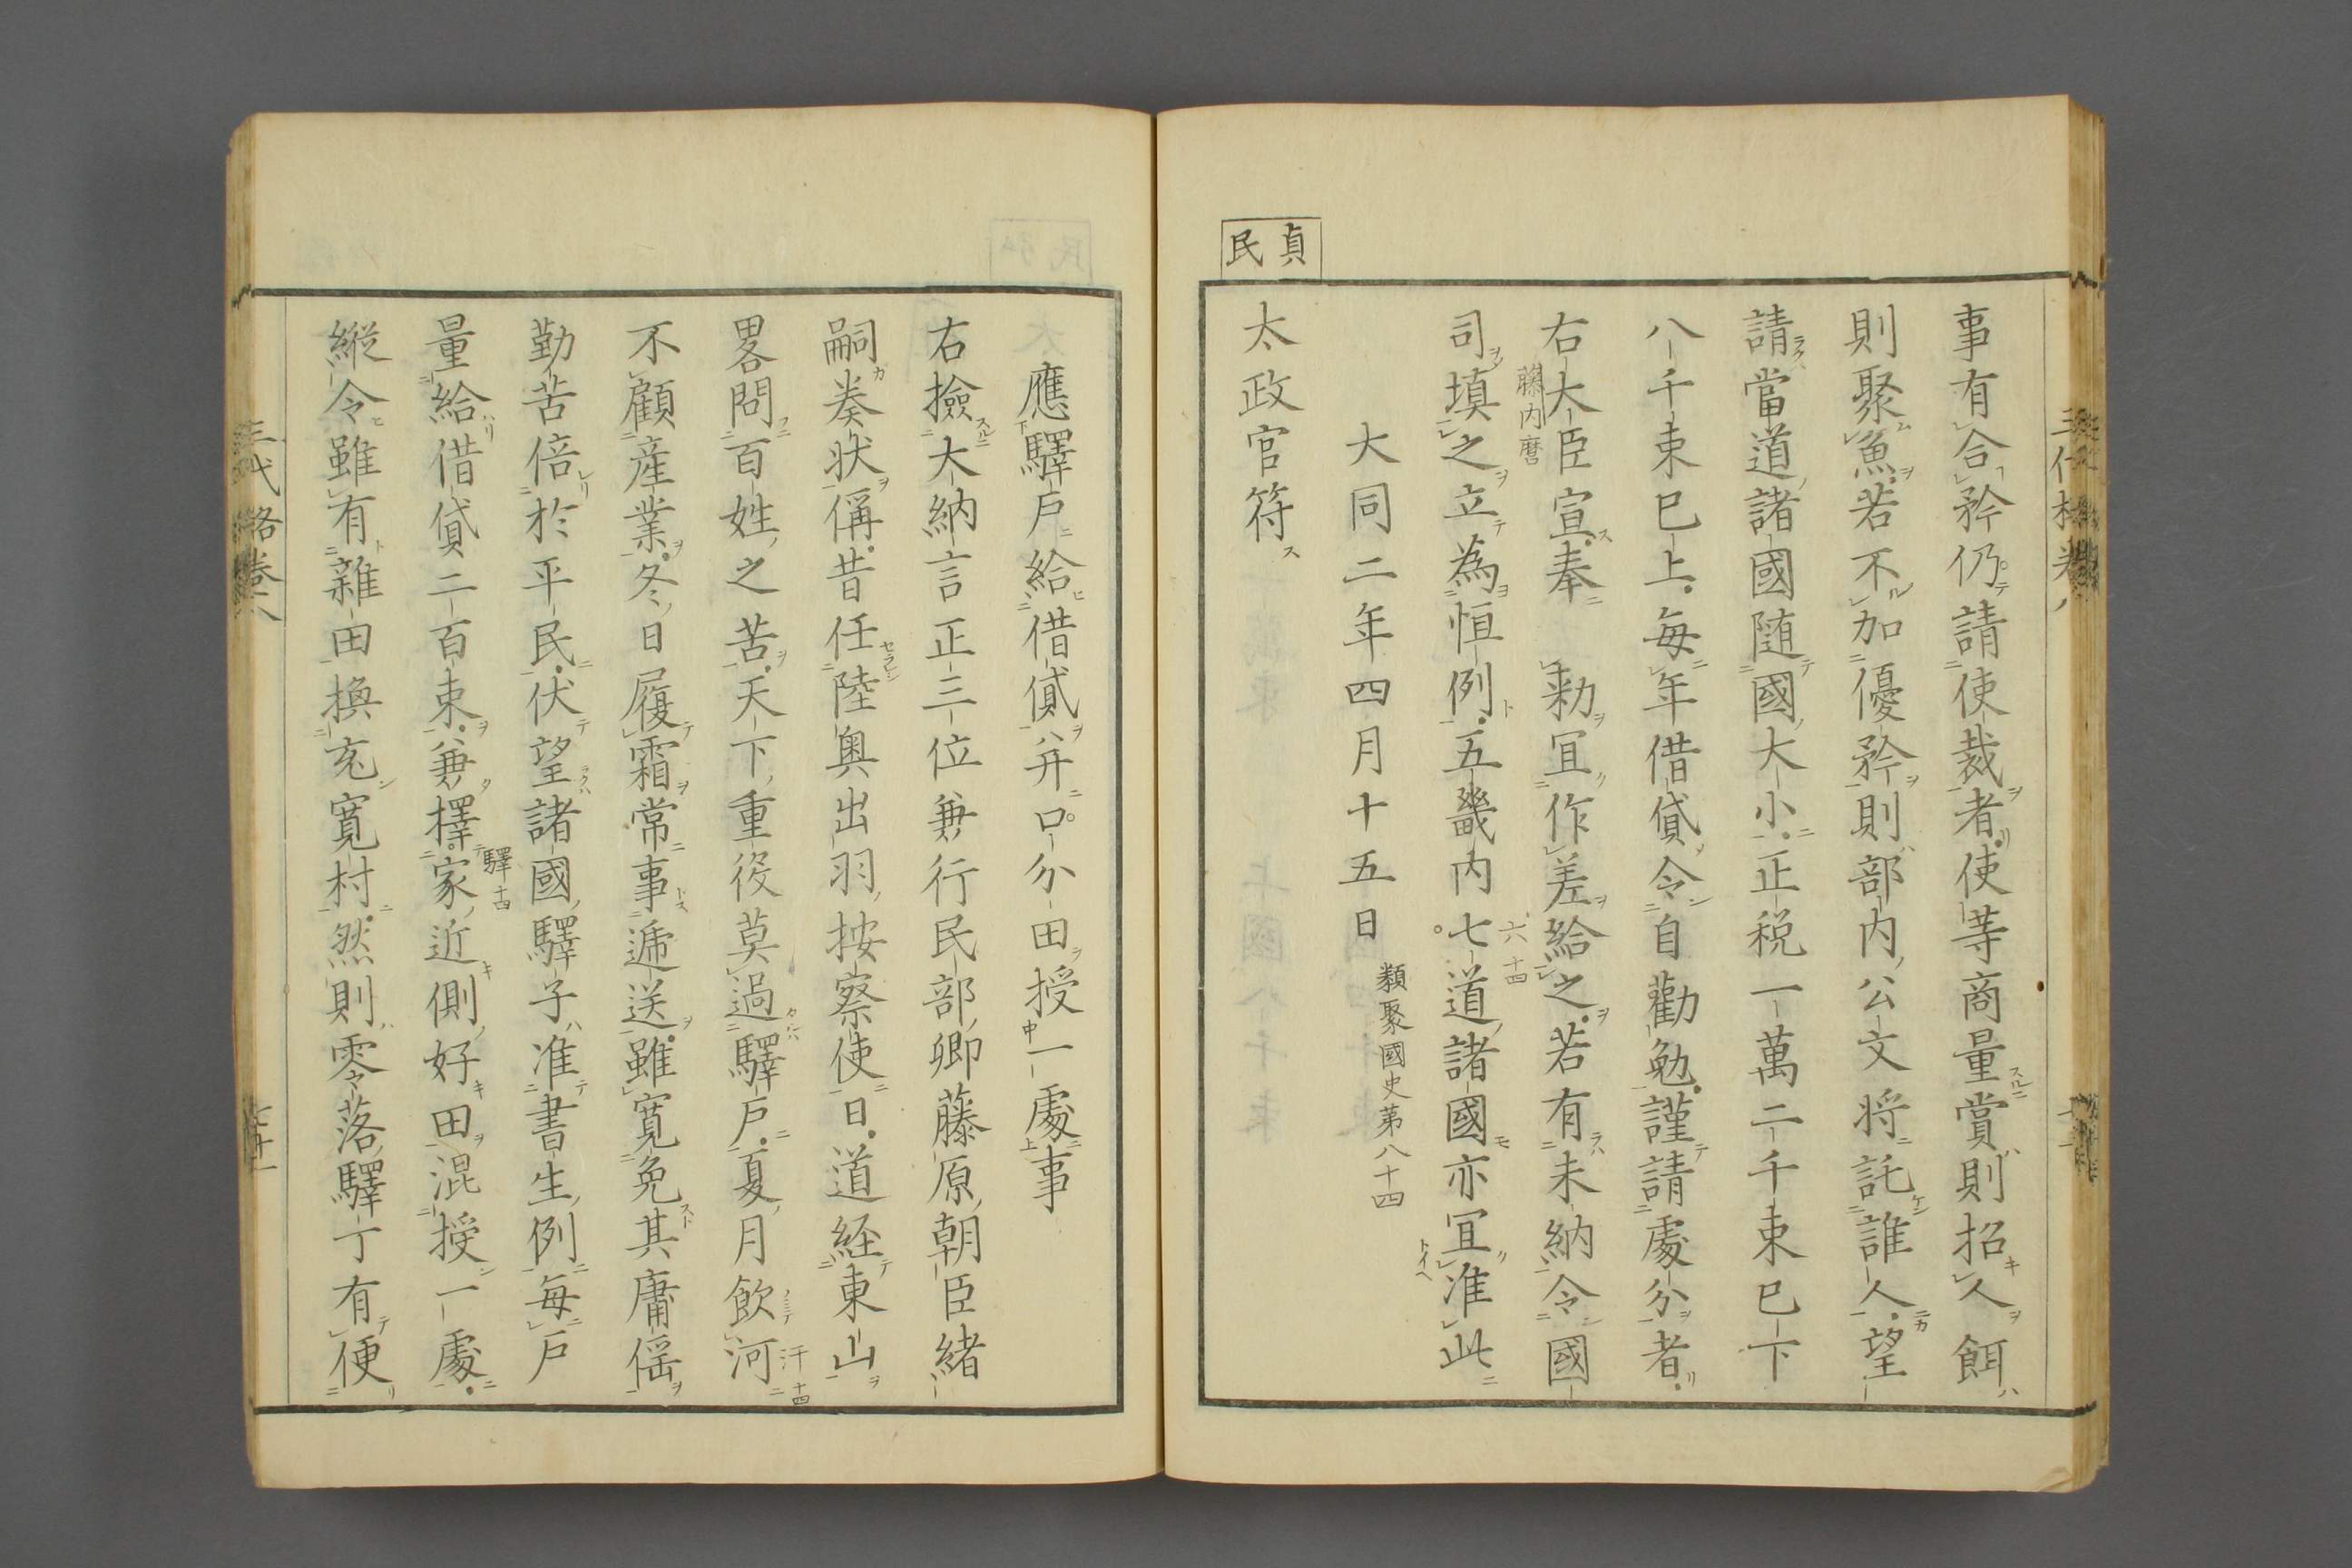 事有合矜仍請使裁者使等商量賞則招人餌
則聚魚若不加優矜則部内公文将託誰人望
請當道諸國随國大小正税一萬二千束已下
八千束已上毎年借貸令自勸勉謹請處分者
右大臣宣奉　勅冝作差給之若有未納令國
藤内麿
司填之立為恒例五畿内七道諸國亦冝准此
六十四
大同二年四月十五日　類聚國史第八十四
貞民
太政官符
應驛戸給借貸并口分田授一處事
右撿大納言正三位兼行民部卿藤原朝臣緒
嗣奏状偁昔任陸奥出羽按察使日道経東山
畧問百姓之苦天下重役莫過驛戸夏月飲河
汗十四
不顧産業冬日履霜常事逓送雖寛免其庸徭
勤苦倍於平民伏望諸國驛子准書生例毎戸
量給借貸二百束兼擇家近側好田混授一處
驛十四
縦令雖有雜田換充寛村然則零落驛丁有便
三代格卷八